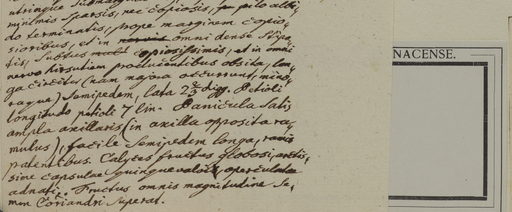 utringue submarg
minimis sparsis, nec copiosis, pilo albi
do terminatis, prope marginem copio-
sioribus, et in nervis omni dense stipa
tis, subtus copiosissimis, et in omni
nervo hirsutiem producentibus obsita, lon-
ga circiter (nam majora occurrunt, mino,
raque) Semipedem, lata 2 digg. Petioli
longitudo petioli 7 lin. Panicula satis
ampla axillaris (in axilla opposita ra-
mulus), facile Semipedem longa, racis
patentibus. Calyces fructus globosi, arctis,
sime capsulae quinquevalvi, operculata
adnati. Fructus omnis magnitudine Se,
men Coriandri superat.
NACENSE.